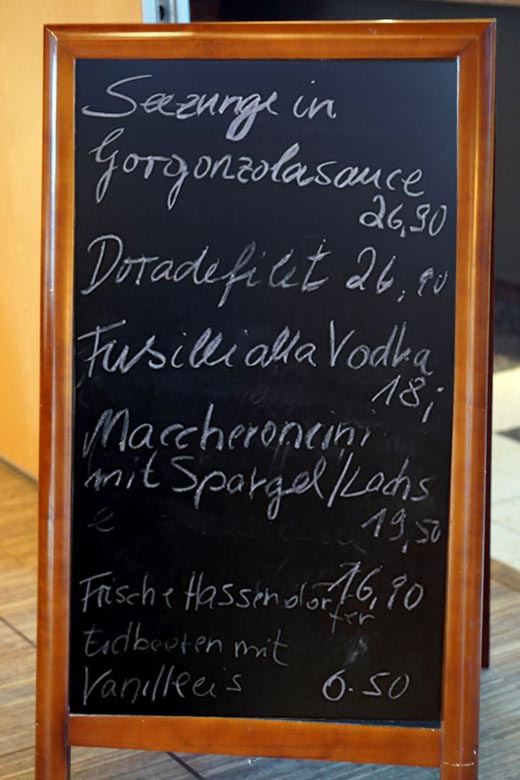 Seezunge in
Gorgonzolasauce
26,90
Doradefilet 26,90
Fusilli alla Vodka
18,
Maccheroncini
mit Spargel/Lachs
19,50
16,90
Frische Hassendorfer
Erdbeeren mit
Vanilleeis 6.50